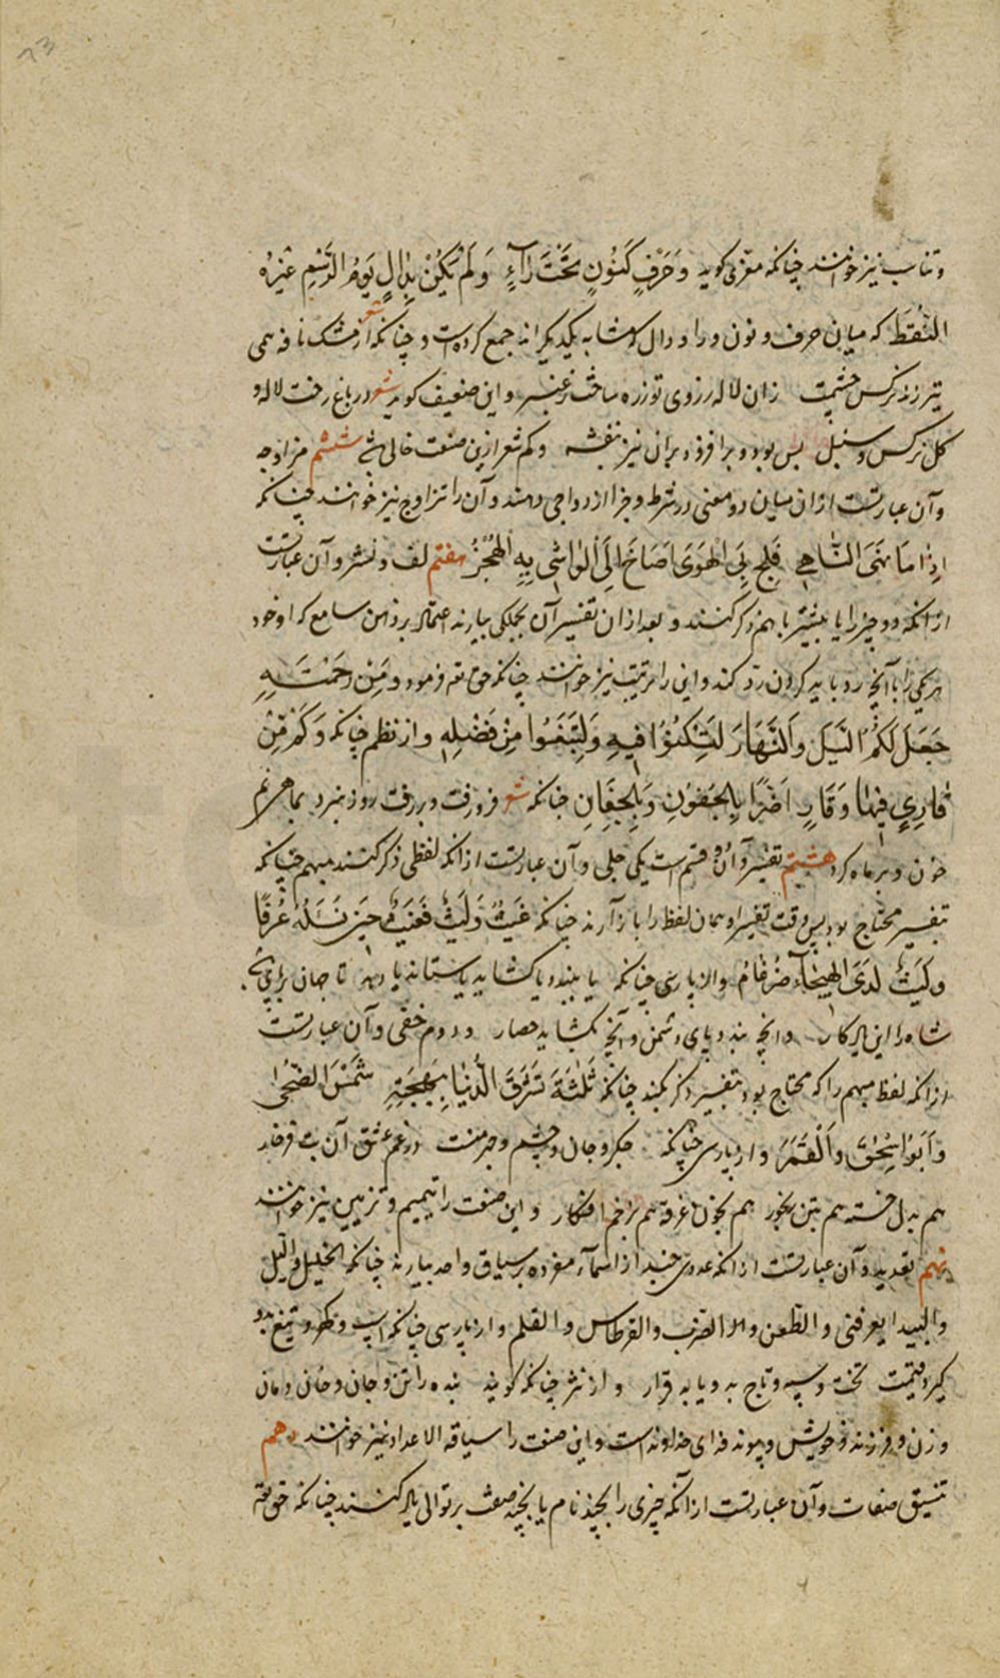 و تناسب نیز خوانند چنانکه معری کوید وَحَرْفٍ کَنُوْنٍ تَحْتَ رَآءٍ وَلَمْ یَکُنْ بِدَالٍ یَؤُمُّ الرَّسْمَ غَیَّرَهُ
النُقَطَ که میان حرف و نون و را و دال که مشابه یکدیکراند جمع کرده است و چنانکه شعر از مشک نافه همی
تیر زند نرکس چشمت زان لاله رزوی تو زره ساخت زعنبر و این ضعیف کوید شعر در باغ رخت لاله و
کل نرکس و سنبل بس بود و برافزود بران نیز بنفشه و کم شعر ازین صنعت خالی ششم مزاوجه
و آن عبارتست از ان میان دو معنی در شرط و جزا ازدواجی دهند و آن را تزاوج نیز خوانند چنانکه
اِذَا مَا نَهَی النَّاهِی فَلَجَ بِیَ الهَوَی اَصَاخَ اِلَی الوَاشِی بِهِ الهَجْرُ هفتم لف و نشر و آن عبارتست
از آنکه دو چیز را یا بیشتر با هم ذکر کنند و بعد از ان تفسیر آن بجملکی بیارند اعتماد بر ذهن سامع که او خود
هر یکی را با آنچه رد باید کردن رد کند و این را مرتب نیز خوانند چنانکه حق تعه فرمود وَمِنْ رَحْمَتِهِ
جَعَلَ لَکُمُ اللَّیْلَ وَالنَّهَارَ لِتَسْکُنُوْا فِیهِ وَلِتَبْتَغُوا مِنْ فَضْلِهِ و از نظم چنانکه وَکَمْ مِنْ
قَارِئٍ فِیهَا وَقَارٍ اَضَرَّا بِالجُفُونِ وَبِالجِفَانِ چنانکه شعر فرو رفت و بر رفت روز نبرد بماهی نم
خون و بر ماه کرد هشتم تفسیر و آن دو قسم است یکی جلی و آن عبارتست از آنکه لفظی ذکر کنند مبهم چنانکه
بتفسیر محتاج بود پس وقت تفسیر او همان لفظ را باز آرند چنانکه غَیْثٌ وَلَیْثٌ فَغَیْثٌ حِینَ تَسْئَلُهُ عُرْفًا
وَلَیْثٌ لَدَی الهَیْجَآءِ ضِرْغَامُ و از پارسی چنانکه یا ببندد یا کشاید یا ستاند یا دهد تا جهان برپای
شاه را این یادکار وانچه بندد پای دشمن وآنچه بکشاید حصار و دوم خفی و آن عبارتست
از آنکه لفظ مبهم را که محتاج بود بتفسیر ذکر نکند چنانکه ثَلٰثَةٌ تُشْرِقُ الدُّنْیَا بِبَهْجَتِهِ شَمْسُ الضُّحٰی
وَاَبُوْاِسْحٰقَ وَالْقَمَرُ و از پارسی چنانکه جکر و جان و چشم و چهر منست در غم عشق آن بت فرخار
هم بدل خسته هم بتن رنجور هم بخون غرقه هم بزخم افکار و این صنعت را تتمیم و تزیین نیز خوانند
نهم تعدید و آن عبارتست از آنکه عددی چند از اسمآء مفرده بر سیاق واحد بیارند چنانکه الخیل واللیل
والبیدا یعرفنی والطعن والضرب والقرطاس والقلم و از پارسی چنانکه اسپ و کهر و تیغ بدو
کیرد قیمت تخت و سپه و تاج بدو یابد قرار و از نثر چنانکه کویند بنده را تن و جان و خان و مان
و زن و فرزند و خویش و پیوند فدای خداوند است و این صنعت را سیاقه الاعداد نیز خوانند دهم
تنسیق صفات و آن عبارتست از آنکه چیزی را بچند نام یا بچند صفت بر توالی یاد کنند چنانکه حق تعه